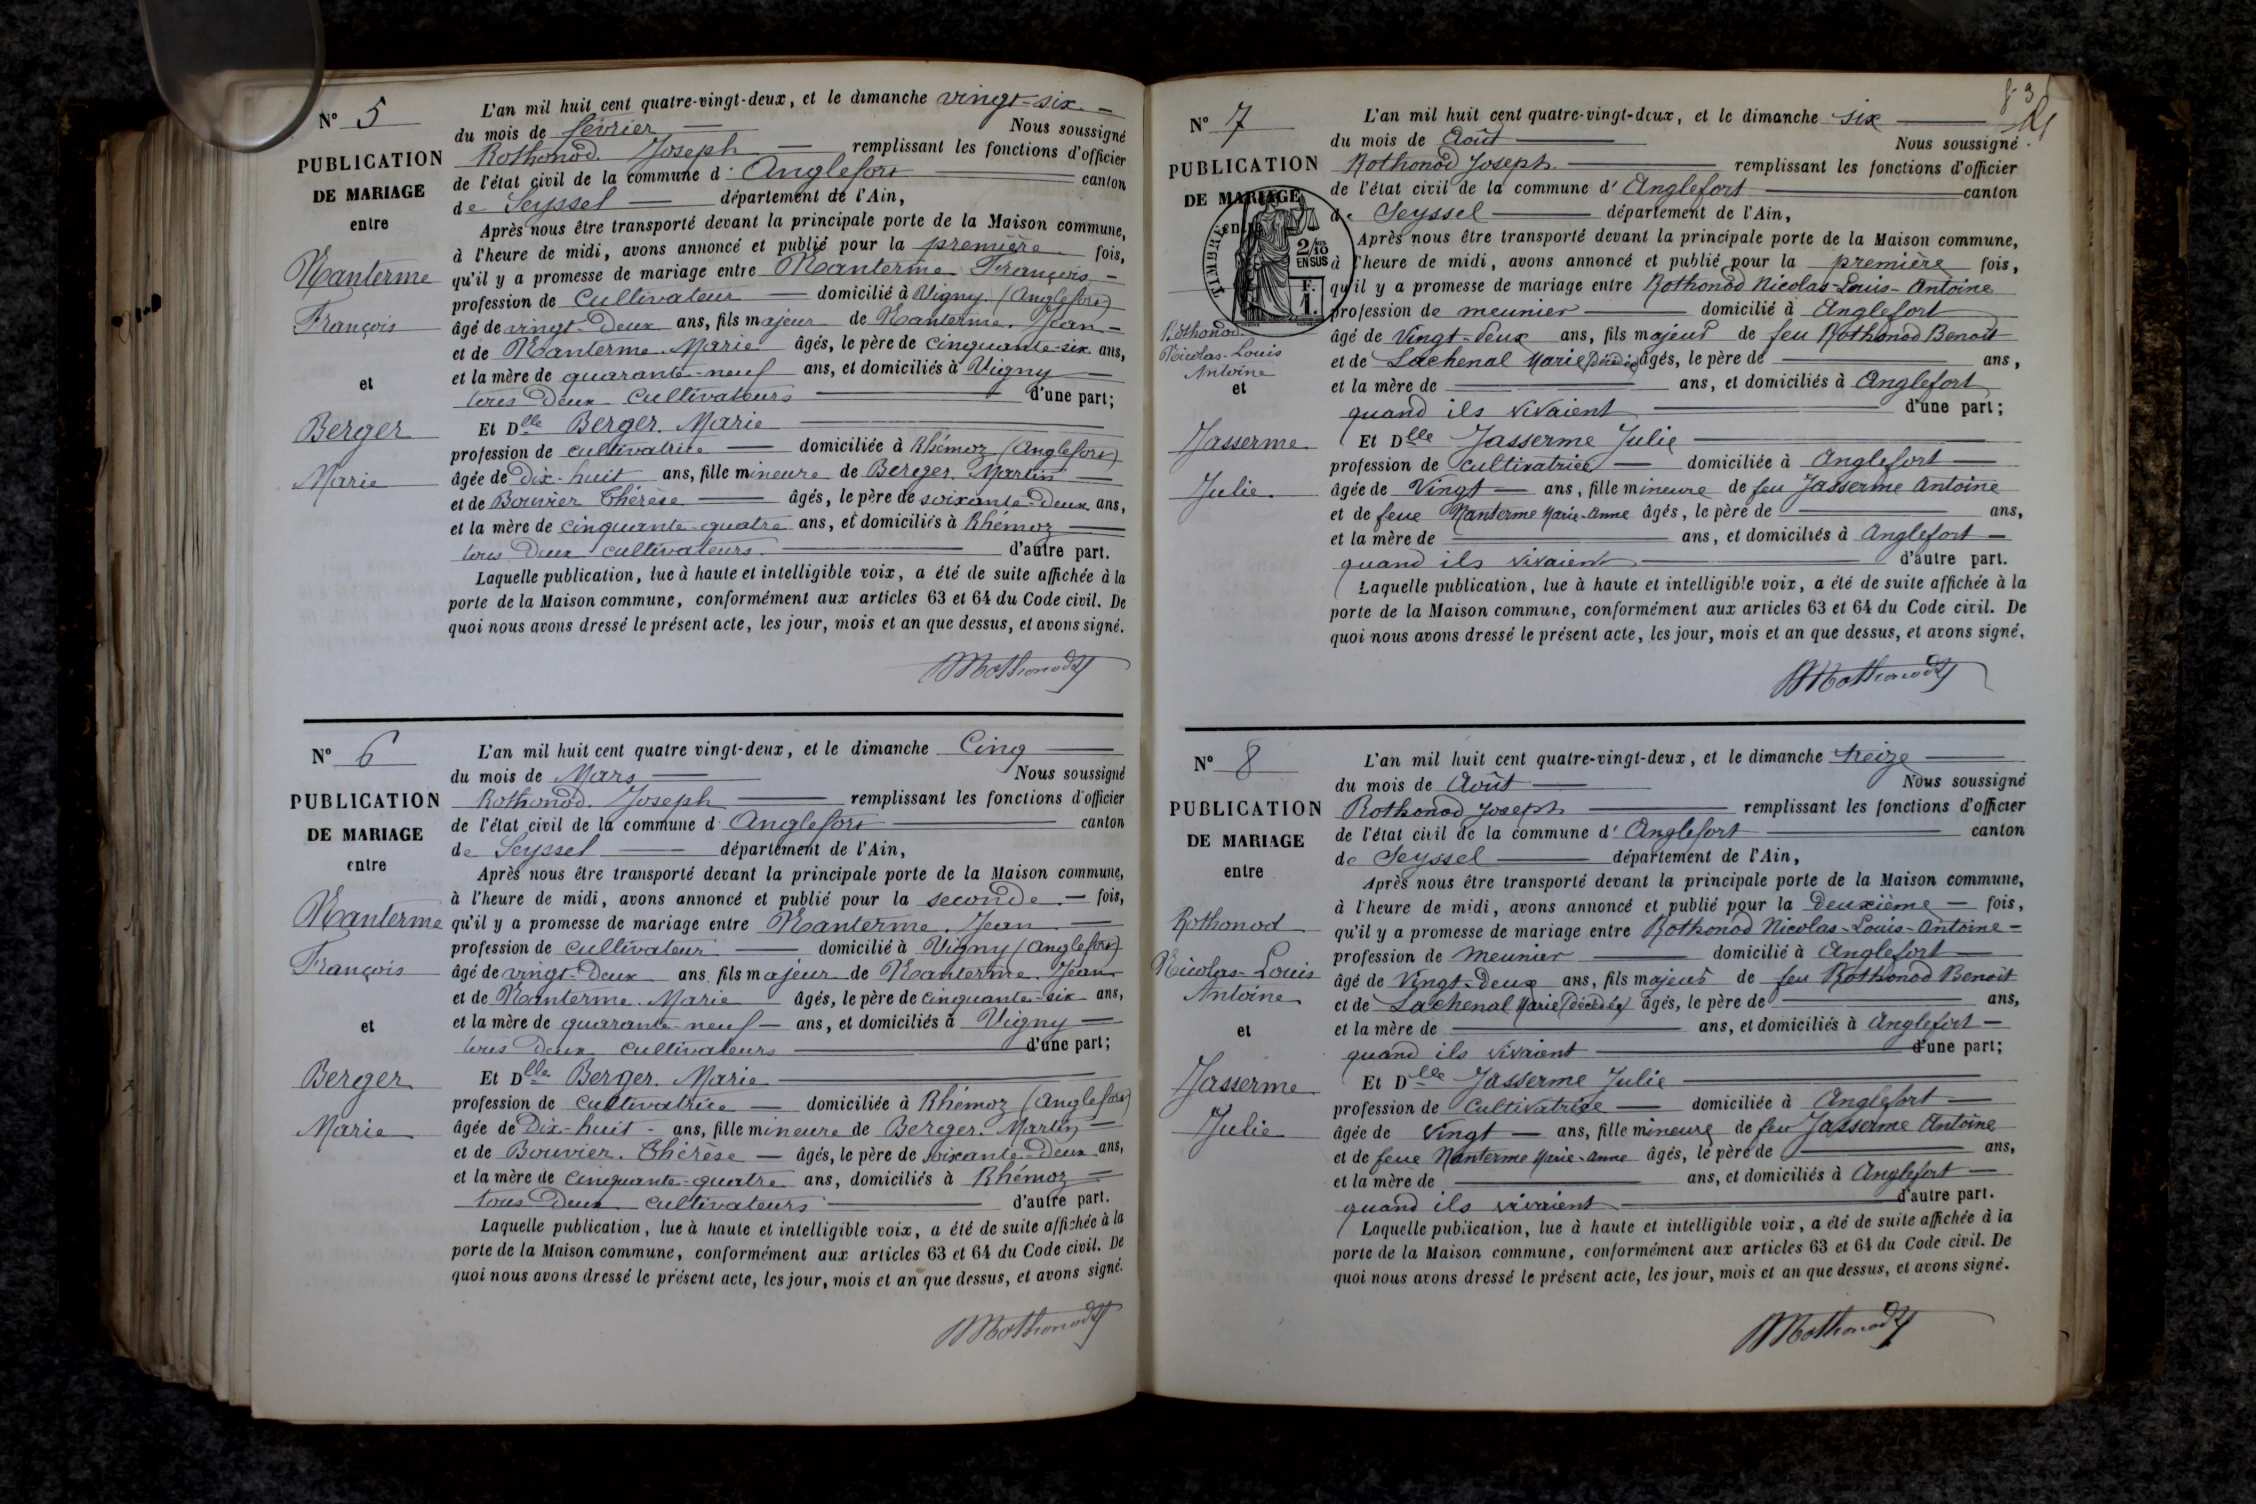 N° 5
PUBLICATION
DE MARIAGE
entre
Nanterme
François
et
Berger
Marie
L'an mil huit cent quatre-vingt-deux, et le dimanche vingt-six
du mois de février Nous soussigné
Rothonod Joseph remplissant les fonctions d'officier
de l'état civil de la commune d' Anglefort canton
de Seyssel département de l'Ain,
Après nous être transporté devant la principale porte de la Maison commune,
à l'heure de midi, avons annoncé et publié pour la première fois,
qu'il y a promesse de mariage entre Nanterme François
profession de cultivateur domicilié à Vigny (Anglefort)
âgé de vingt-deux ans, fils majeur de Nanterme Jean
et de Nanterme Marie âgés, le père de cinquante-six ans,
et la mère de quarante-neuf ans, et domiciliés à Vigny
tous deux cultivateurs d'une part;
Et Dlle Berger Marie
profession de cultivatrice domiciliée à Rhémoz (Anglefort)
âgée de dix-huit ans, fille mineure de Berger Martin
et de Bouvier Thérèse âgés, le père de soixante-deux ans,
et la mère de cinquante-quatre ans, et domiciliés à Rhémoz
tous deux cultivateurs d'autre part.
Laquelle publication, lue à haute et intelligible voix, a été de suite affichée à la
porte de la Maison commune, conformément aux articles 63 et 64 du Code civil. De
quoi nous avons dressé le présent acte, les jour, mois et an que dessus, et avons signé.
Rothonod
N° 6
PUBLICATION
DE MARIAGE
entre
Nanterme
François
et
Berger
Marie
L'an mil huit cent quatre vingt-deux, et le dimanche Cinq
du mois de Mars Nous soussigné
Rothonod Joseph remplissant les fonctions d'officier
de l'état civil de la commune d Anglefort canton
de Seyssel département de l'Ain,
Après nous être transporté devant la principale porte de la Maison commune,
à l'heure de midi, avons annoncé et publié pour la seconde fois,
qu'il y a promesse de mariage entre Nanterme Jean
profession de cultivateur domicilié à Vigny (Anglefort)
âgé de vingt-deux ans fils majeur de Nanterme Jean
et de Nanterme Marie âgés, le père de cinquante-six ans,
et la mère de quarante-neuf ans, et domiciliés à Vigny
tous deux cultivateurs d'une part;
Et Dlle Berger Marie
profession de cultivatrice domiciliée à Rhémoz (Anglefort)
âgée de Dix-huit ans, fille mineure de Berger Martin
et de Bouvier Thérèse âgés, le père de soixante-deux ans,
et la mère de cinquante-quatre ans, domiciliés à Rhémoz
tous deux cultivateurs d'autre part.
Laquelle publication, lue à haute et intelligible voix, a été de suite affichée à la
porte de la Maison commune, conformément aux articles 63 et 64 du Code civil. De
quoi nous avons dressé le présent acte, les jour, mois et an que dessus, et avons signé.
Rothonod
N° 7
PUBLICATION
DE MARIAGE
entre
TIMBRE
2/10 EN SUS
F. 1.
Rothonod
Nicolas-Louis
Antoine
et
Jasserme
Julie
L'an mil huit cent quatre-vingt-deux, et le dimanche six
du mois de Août Nous soussigné
Rothonod Joseph remplissant les fonctions d'officier
de l'état civil de la commune d' Anglefort canton
de Seyssel département de l'Ain,
Après nous être transporté devant la principale porte de la Maison commune,
à l'heure de midi, avons annoncé et publié pour la première fois,
qu'il y a promesse de mariage entre Rothonod Nicolas-Louis-Antoine
profession de meunier domicilié à Anglefort
âgé de Vingt-deux ans, fils majeur de feu Rothonod Benoit
et de Lachenal Marie âgés, le père de ans,
et la mère de ans, et domiciliés à Anglefort
quand ils vivaient d'une part;
Et Dlle Jasserme Julie
profession de cultivatrice domiciliée à Anglefort
âgée de Vingt ans, fille mineure de feu Jasserme Antoine
et de feue Nanterme Marie-Anne âgés, le père de ans,
et la mère de ans, et domiciliés à Anglefort
quand ils vivaient d'autre part.
Laquelle publication, lue à haute et intelligible voix, a été de suite affichée à la
porte de la Maison commune, conformément aux articles 63 et 64 du Code civil. De
quoi nous avons dressé le présent acte, les jour, mois et an que dessus, et avons signé.
Rothonod
N° 8
PUBLICATION
DE MARIAGE
entre
Rothonod
Nicolas-Louis
Antoine
et
Jasserme
Julie
L'an mil huit cent quatre-vingt-deux, et le dimanche treize
du mois de Août Nous soussigné
Rothonod Joseph remplissant les fonctions d'officier
de l'état civil de la commune d' Anglefort canton
de Seyssel département de l'Ain,
Après nous être transporté devant la principale porte de la Maison commune,
à l'heure de midi, avons annoncé et publié pour la deuxième fois,
qu'il y a promesse de mariage entre Rothonod Nicolas-Louis-Antoine
profession de meunier domicilié à Anglefort
âgé de Vingt-deux ans, fils majeur de feu Rothonod Benoit
et de Lachenal Marie (décédés) âgés, le père de ans,
et la mère de ans, et domiciliés à Anglefort
quand ils vivaient d'une part;
Et Dlle Jasserme Julie
profession de Cultivatrice domiciliée à Anglefort
âgée de Vingt ans, fille mineure de feu Jasserme Antoine
et de feue Nanterme Marie-Anne âgés, le père de ans,
et la mère de ans, et domiciliés à Anglefort
quand ils vivaient d'autre part.
Laquelle publication, lue à haute et intelligible voix, a été de suite affichée à la
porte de la Maison commune, conformément aux articles 63 et 64 du Code civil. De
quoi nous avons dressé le présent acte, les jour, mois et an que dessus, et avons signé.
Rothonod